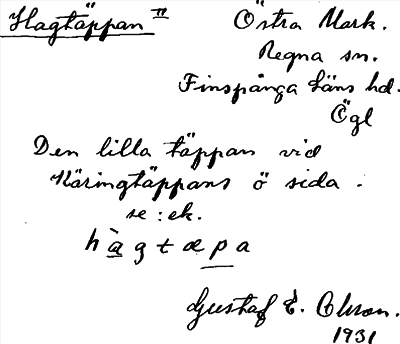 Hagtäppan II
Östra Mark.
Regna sn.
Finspånga läns hd.
Ögl
Den lilla täppan vid
Käringtäppans ö sida.
se: ek.
hàgtæpa
Gustaf E. Olsson.
1931